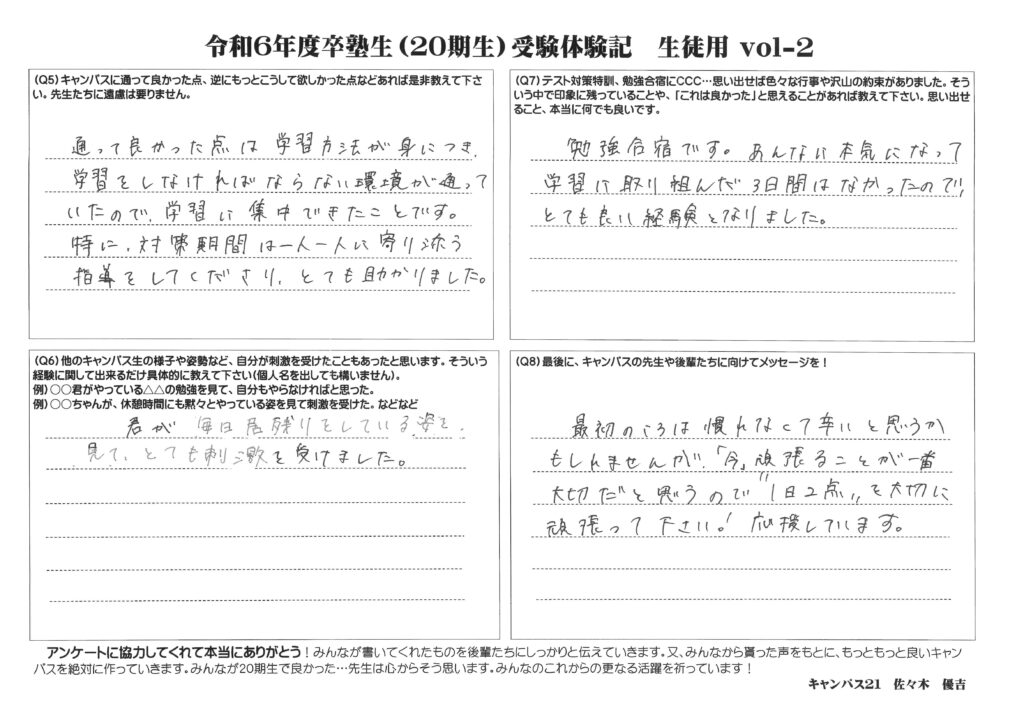 令和6年度卒塾生(20期生)受験体験記　生徒用 vol-2
(Q5)キャンパスに通って良かった点、逆にもっとこうして欲しかった点などあれば是非教えて下さ
い。先生たちに遠慮は要りません。
通って良かった点は学習方法が身につき、
学習をしなければならない環境が通って
いたので、学習に集中できたことです。
特に、対策期間は一人一人に寄り添う
指導をしてくださり、とても助かりました。
(Q7)テスト対策特訓、勉強合宿にCCC…思い出せば色々な行事や沢山の約束がありました。そう
いう中で印象に残っていることや、「これは良かった」と思えることがあれば教えて下さい。思い出せ
ること、本当に何でも良いです。
勉強合宿です。あんなに本気になって
学習に取り組んだ3日間はなかったので、
とても良い経験となりました。
(Q6)他のキャンパス生の様子や姿勢など、自分が刺激を受けたこともあったと思います。そういう
経験に関して出来るだけ具体的に教えて下さい(個人名を出しても構いません)。
例)○○君がやっている△△の勉強を見て、自分もやらなければと思った。
例)○○ちゃんが、休憩時間にも黙々とやっている姿を見て刺激を受けた。などなど
君が 毎日居残りをしている姿を、
見て、とても刺激を受けました。
(Q8)最後に、キャンパスの先生や後輩たちに向けてメッセージを!
最初のころは慣れなくて辛いと思うか
もしれませんが、「今」頑張ることが一番
大切だと思うので"1日2点"を大切に
頑張って下さい!応援しています。
アンケートに協力してくれて本当にありがとう!みんなが書いてくれたものを後輩たちにしっかりと伝えていきます。又、みんなから貰った声をもとに、もっともっと良いキャン
パスを絶対に作っていきます。みんなが20期生で良かった…先生は心からそう思います。みんなのこれからの更なる活躍を祈っています!
キャンパス21　佐々木　優吉